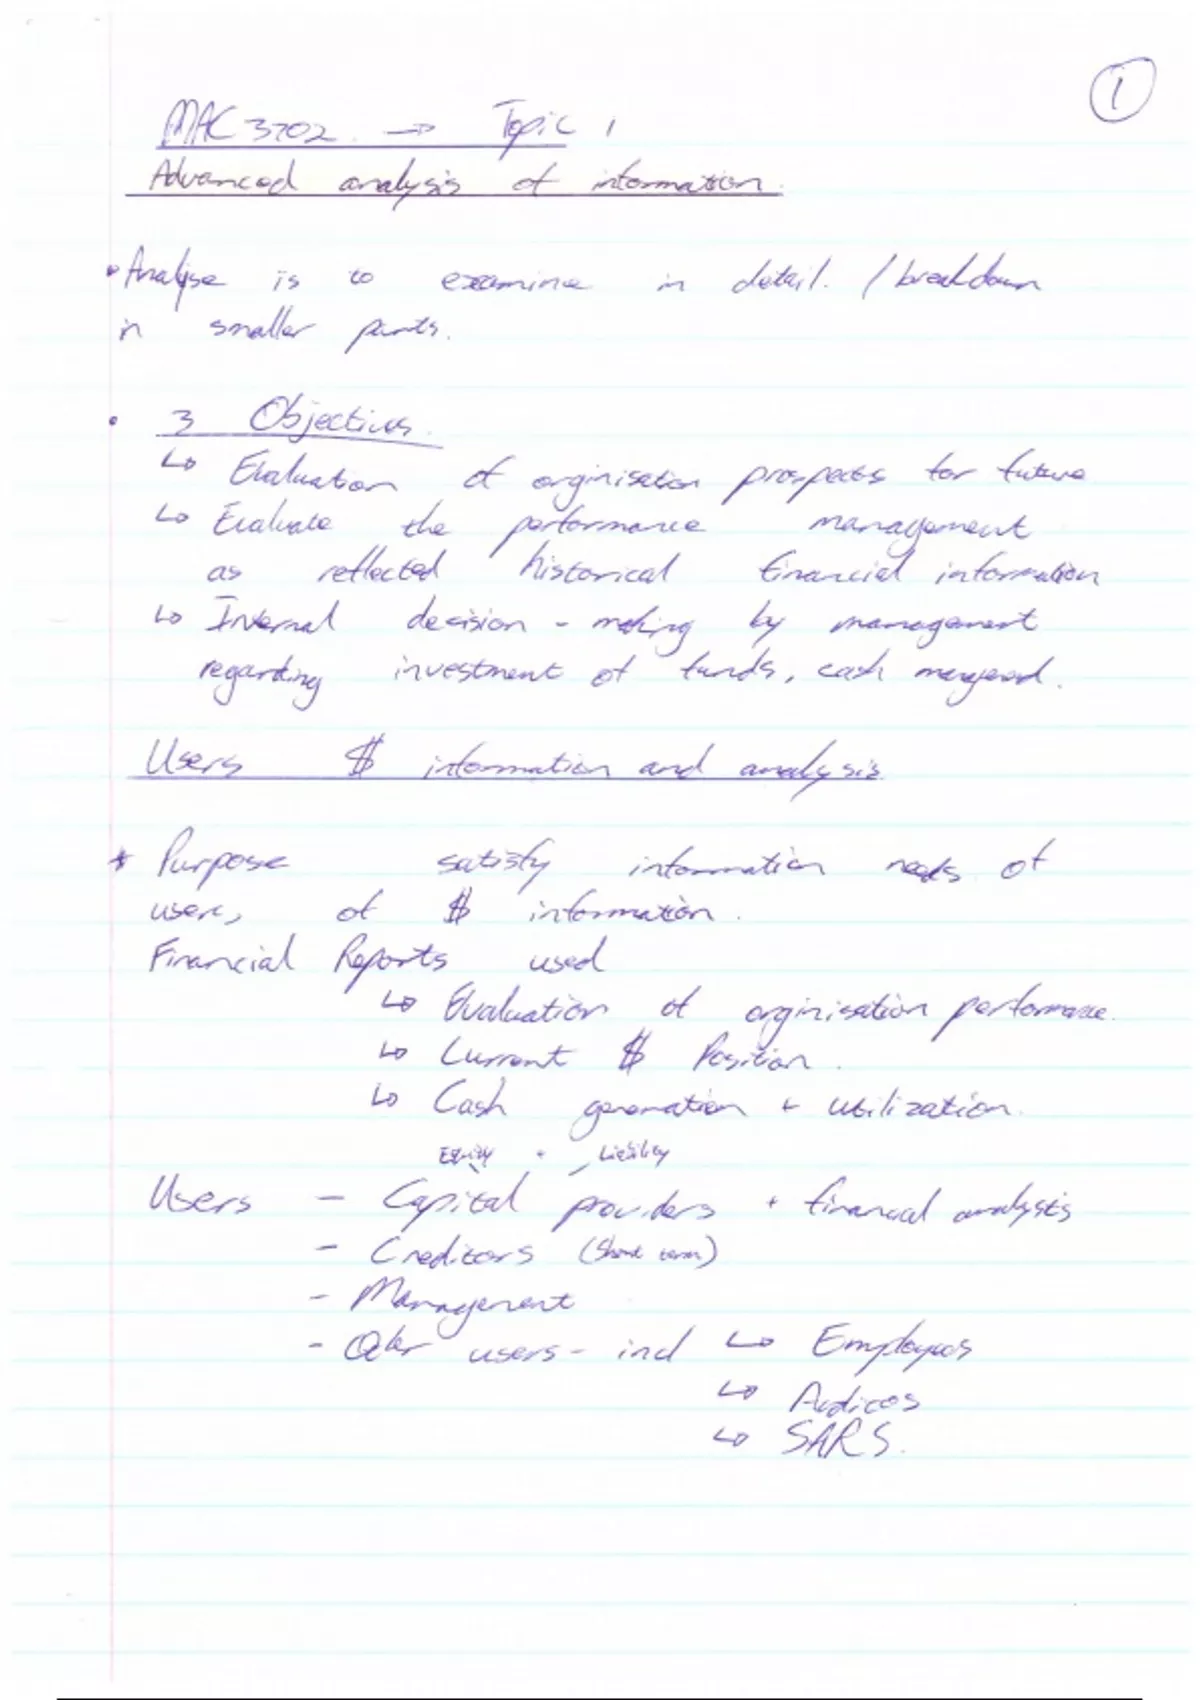 1
MAC 3702 → Topic 1
Advanced analysis of information.
• Analyse is to examine in detail. / breakdown
in smaller parts.
• 3 Objectives.
↳ Evaluation of orginisation prospects for future
↳ Evaluate the performance management
as reflected historical financial information
↳ Internal decision - making by management
regarding investment of funds, cash
Users $ information and analysis
* Purpose satisfy information needs of
users, of $ information.
Financial Reports used
↳ Evaluation of orginisation performance.
↳ Current $ Position.
↳ Cash generation + utilization.
Equity + Liability
Users - Capital providers + financial analysts
- Creditors (Short term)
- Management
- Other users - incl ↳ Employees
↳
↳ SARS.